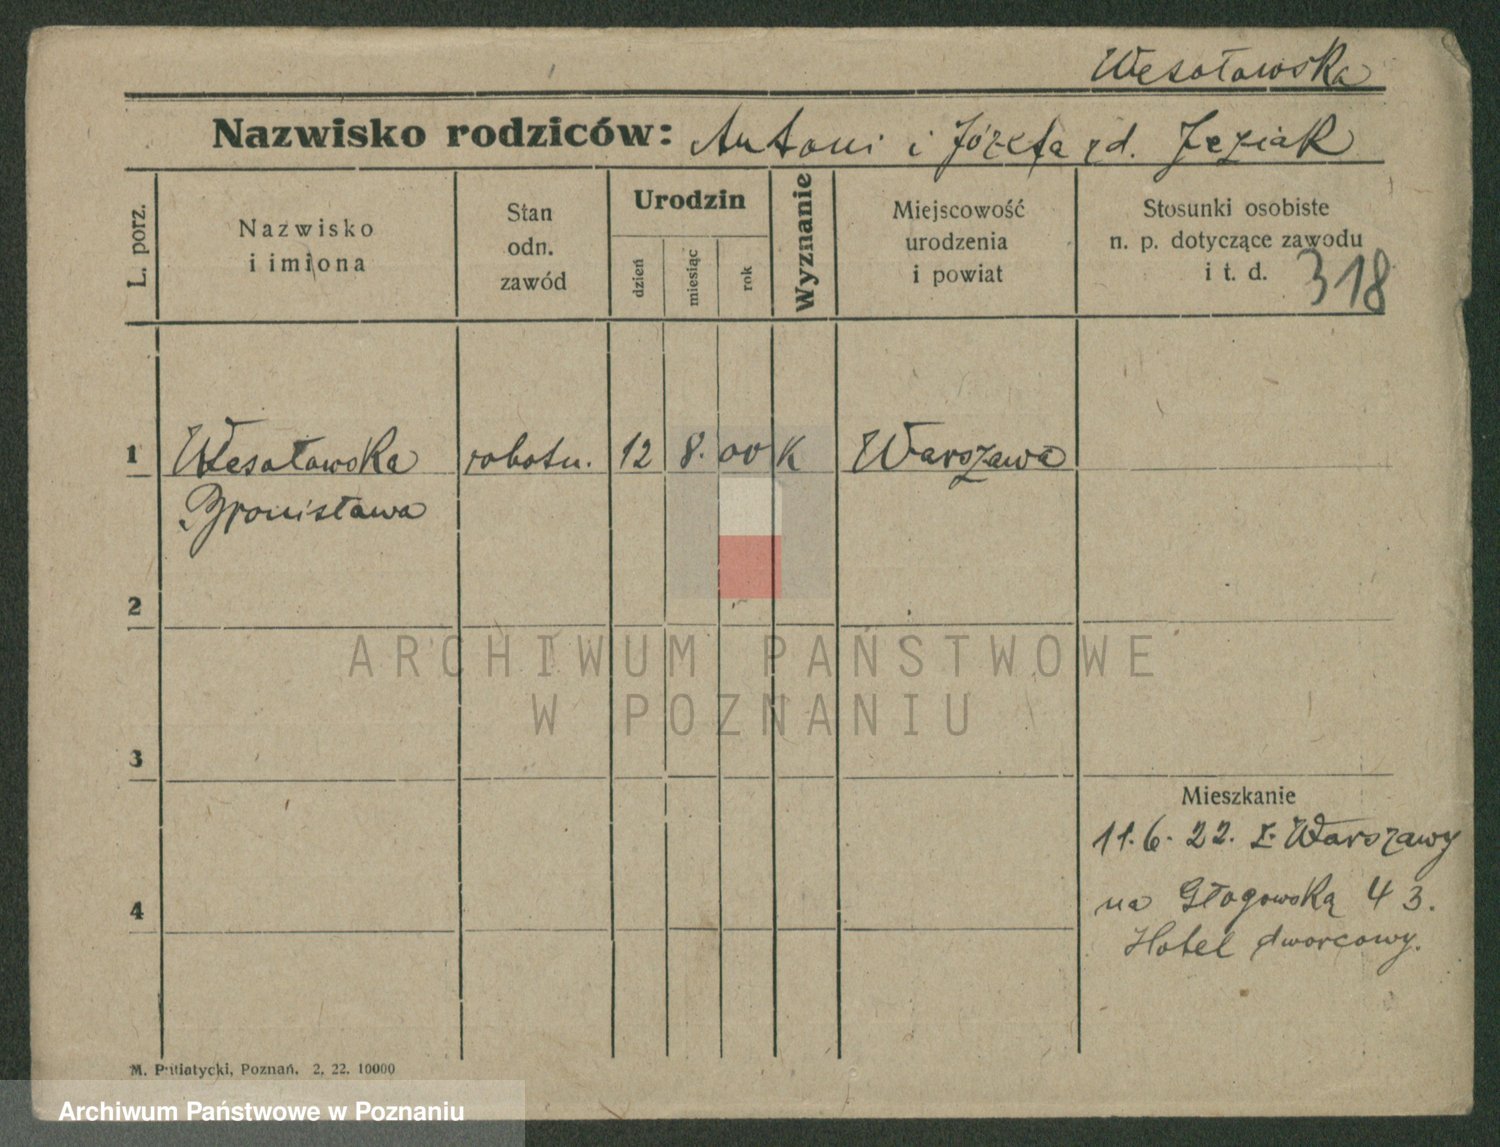 Wesołowska
Nazwisko rodziców: Antoni i Józefa zd. Jeziak
L. porz.
Nazwisko
i imiona
Stan
odn.
zawód
Urodzin
dzień
miesiąc
rok
Wyznanie
Miejscowość
urodzenia
i powiat
Stosunki osobiste
n. p. dotyczące zawodu
i t. d.
318
1 Wesołowska robotn. 12 8. 00 K Warszawa
Bronisława
2
3
4
Mieszkanie
11.6.22. z Warszawy
na Głogowską 43.
Hotel dworcowy.
ARCHIWUM PAŃSTWOWE
W POZNANIU
M. Putiatycki, Poznań. 2. 22. 10000
Archiwum Państwowe w Poznaniu